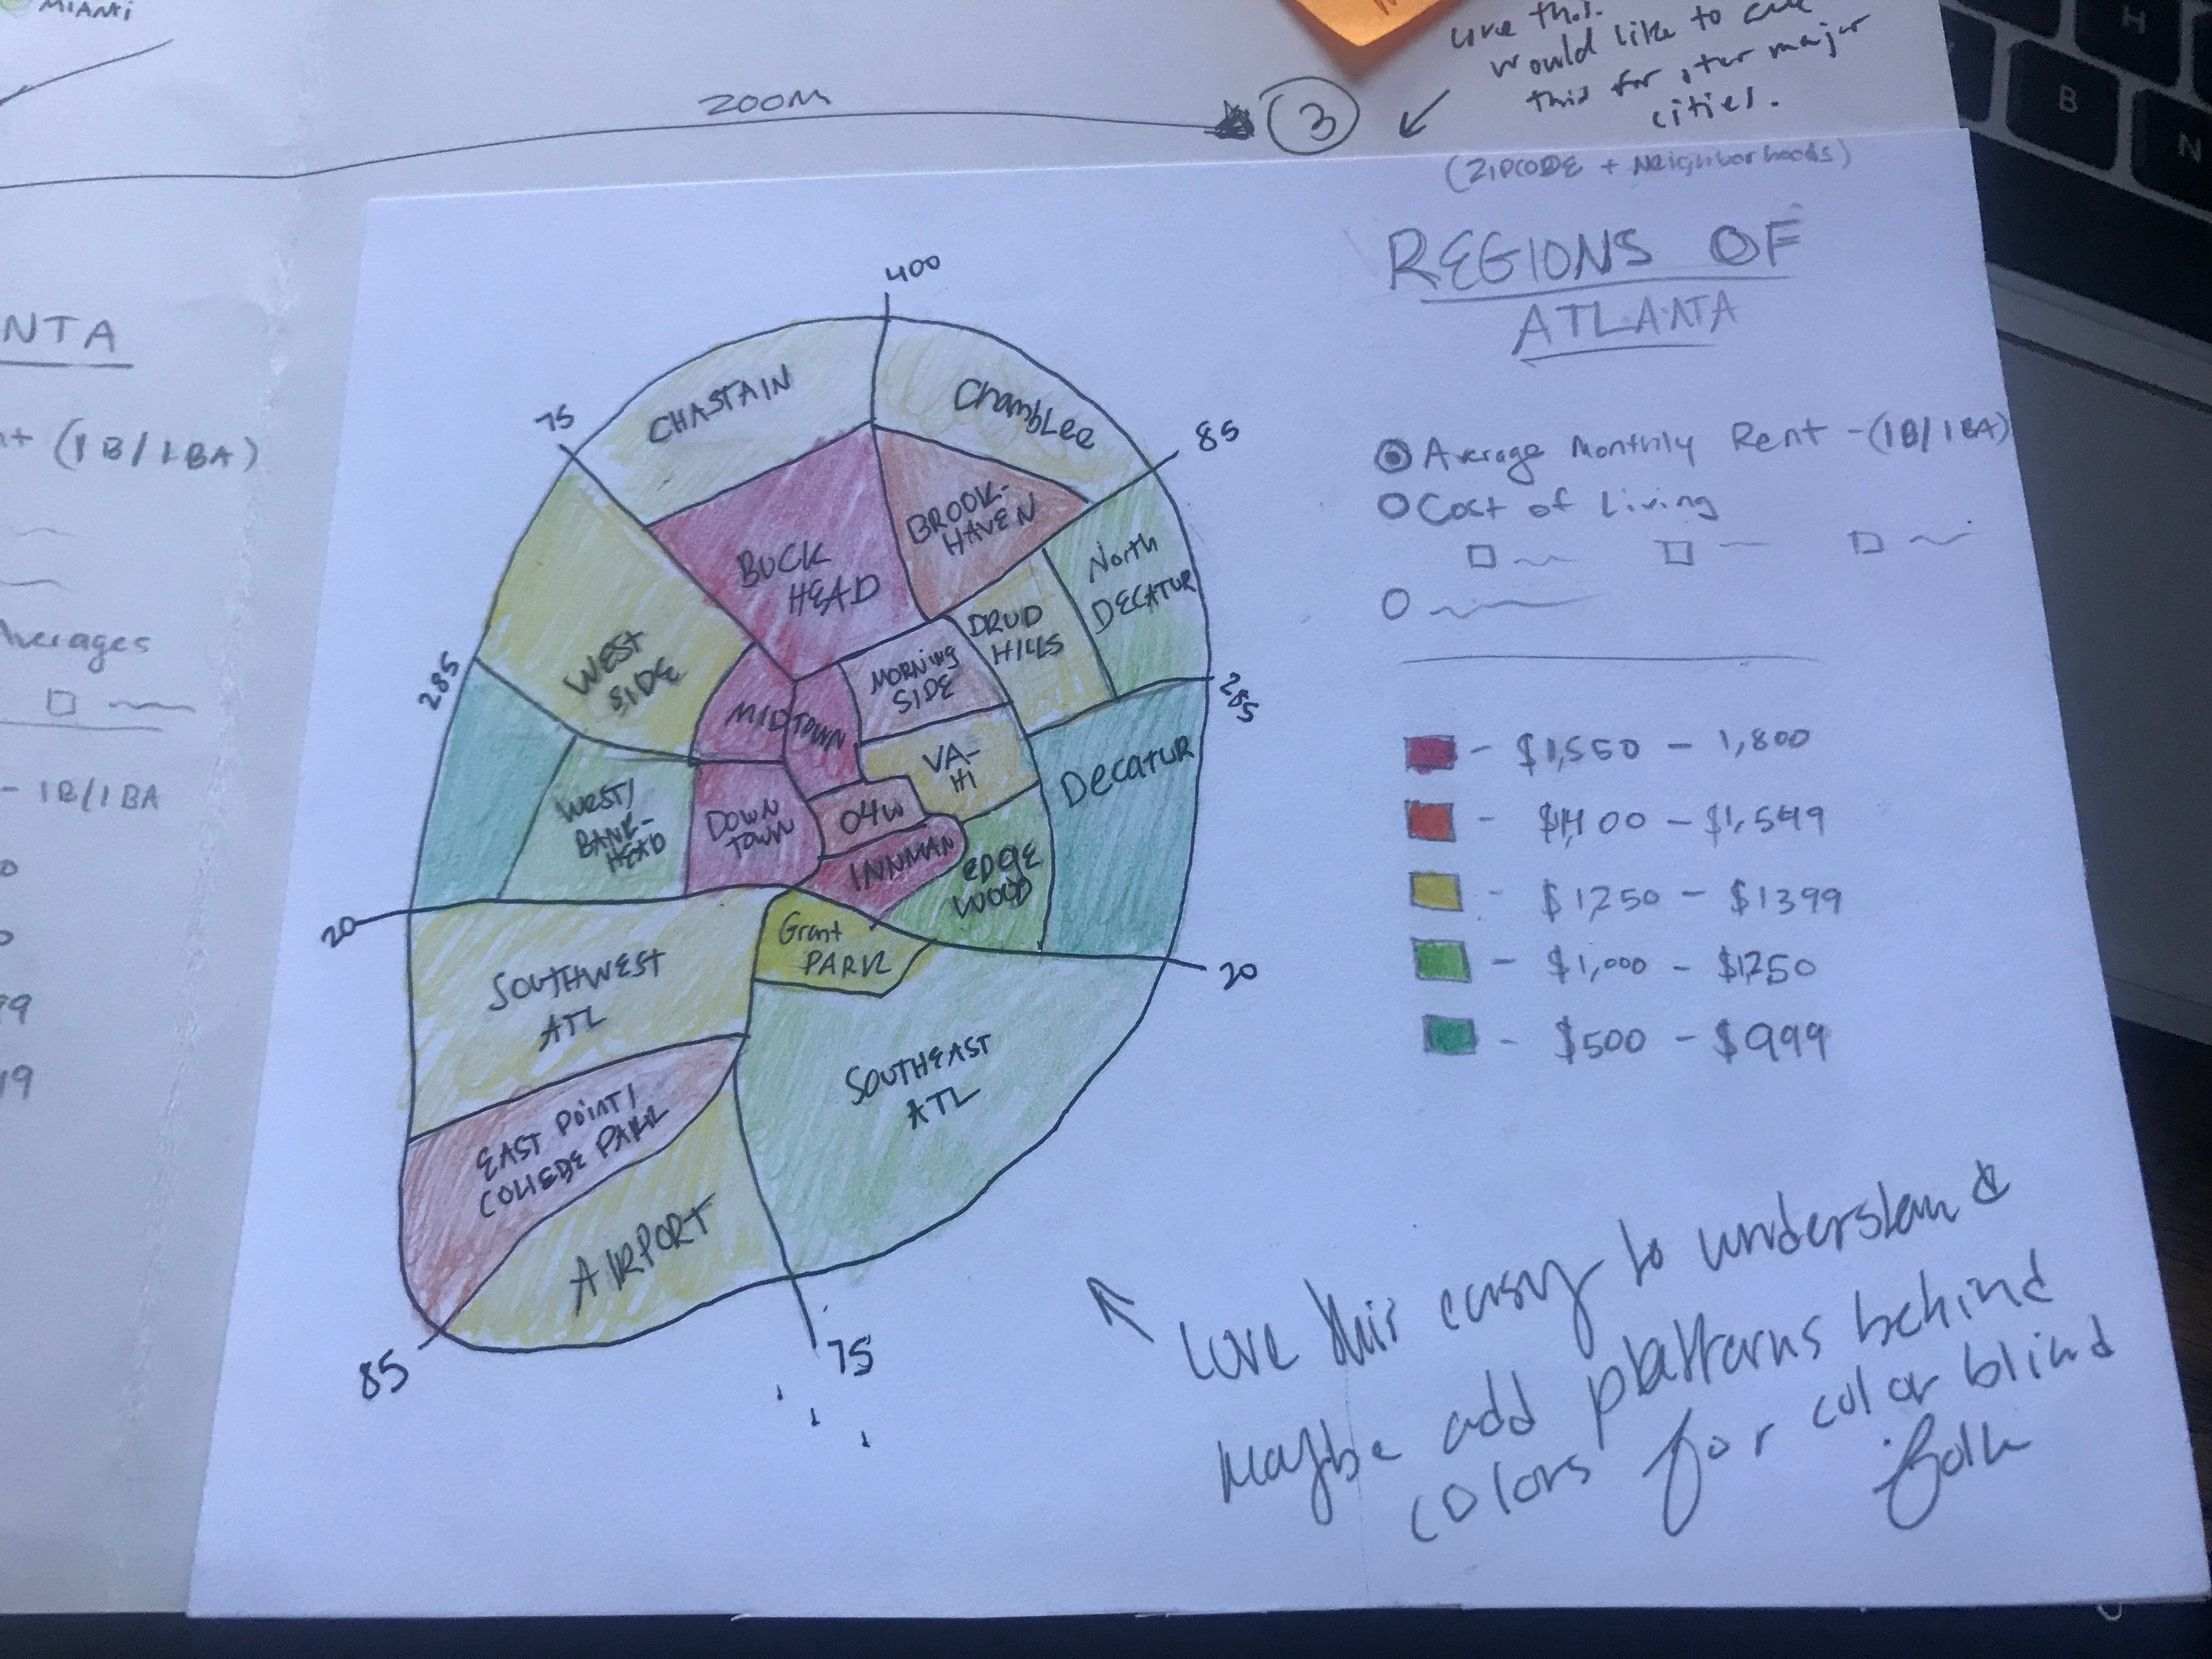 MIAMI
ZOOM
3
like this.
would like to see
this for other major
cities.
(ZIPCODE + Neighborhoods)
REGIONS OF
ATLANTA
NTA
(1B/1BA)
Averages
- 1B/1BA
99
19
400
75
85
285
285
20
20
85
75
CHASTAIN
ChambLee
BUCK
HEAD
BROOK-
HAVEN
North
DECATUR
DRUD
HILLS
WEST
SIDE
MIDTOWN
MORNING
SIDE
VA-
HI
Decatur
WEST/
BANK-
HEAD
DOWN
TOWN
04W
INNMAN
EDGE
WOOD
Grant
PARK
SOUTHWEST
ATL
SOUTHEAST
ATL
EAST POINT/
COLLEGE PARK
AIRPORT
Average Monthly Rent - (1B/1BA)
Cost of Living
- $1,550 - 1,800
- $1,400 - $1,549
- $1250 - $1399
- $1,000 - $1250
- $500 - $999
Love this easy to understand
maybe add patterns behind
colors for color blind
folk
H
B
N